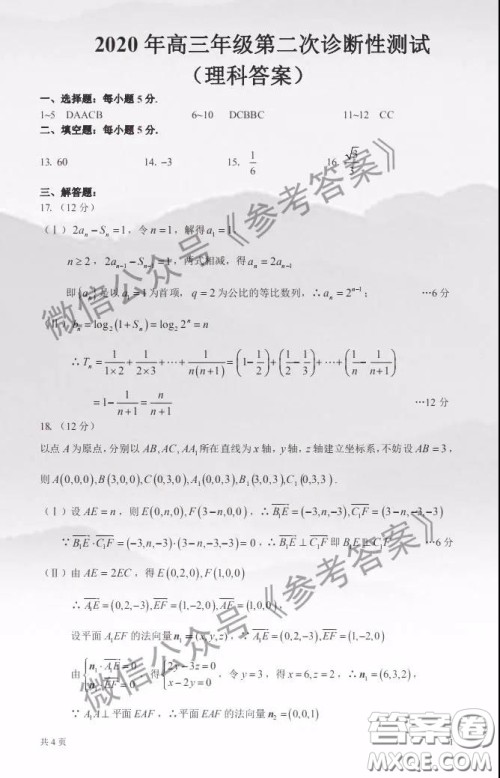 2020 年高三年级第二次诊断性测试
（理科答案）
一、选择题：每小题 5 分.
1~5 DAACB 6~10 DCBBC 11~12 CC
二、填空题：每小题 5 分.
13. 60 14. −3 15. 1/6 16.
三、解答题：
17.（12 分）
（Ⅰ）2aₙ − Sₙ = 1，令 n = 1，解得 a₁ = 1，
n ≥ 2，2aₙ₋₁ − Sₙ₋₁ = 1，两式相减，得 aₙ = 2aₙ₋₁
即{aₙ}是以 a₁ = 1 为首项，q = 2 为公比的等比数列，∴ aₙ = 2ⁿ⁻¹； …6分
（Ⅱ）bₙ = log₂(1 + Sₙ) = log₂ 2ⁿ = n
∴ Tₙ = 1/(1×2) + 1/(2×3) + ⋯ + 1/(n(n+1)) = (1 − 1/2) + (1/2 − 1/3) + ⋯ + (1/n − 1/(n+1))
= 1 − 1/(n+1) = n/(n+1) …12 分
18.（12 分）
以点 A 为原点，分别以 AB, AC, AA₁ 所在直线为 x 轴，y 轴，z 轴建立坐标系，不妨设 AB = 3，
则 A(0,0,0), B(3,0,0), C(0,3,0), A₁(0,0,3), B₁(3,0,3), C₁(0,3,3).
（Ⅰ）设 AE = n，则 E(0,n,0), F(3−n,0,0)，∴ B₁E = (−3,n,−3), C₁F = (3−n,−3,−3)
∵ B₁E · C₁F = (−3,n,−3)·(3−n,−3,−3) = 0，∴ B₁E ⊥ C₁F 即 B₁E ⊥ C₁F …6分
（Ⅱ）由 AE = 2EC，得 E(0,2,0), F(1,0,0)
∴ A₁E = (0,2,−3), EF = (1,−2,0), AF = (1,0,0)，
设平面 A₁EF 的法向量 n₁ = (x,y,z)，∵ A₁E = (0,2,−3), EF = (1,−2,0)
由 { n₁ · A₁E = 0 n₁ · EF = 0，得 { 2y − 3z = 0 x − 2y = 0，令 y = 3，得 x = 6, z = 2，∴ n₁ = (6,3,2)，
∵ A₁A ⊥ 平面 EAF，∴ 平面 EAF 的法向量 n₂ = (0,0,1)
共 4 页
微信公众号《参考答案》
微信公众号《参考答案》
答案圈
MXQE.COM